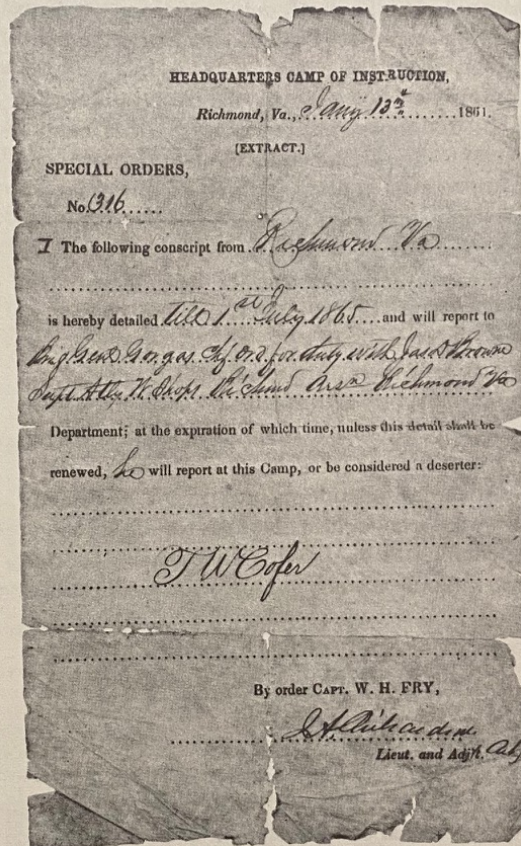 HEADQUARTERS CAMP OF INSTRUCTION,
Richmond, Va., Jany 13th 1861.
[EXTRACT.]
SPECIAL ORDERS,
No. 316
I The following conscript from Richmond Va
is hereby detailed till 1st July 1865 and will report to
Brig Genl Gorgas Chf Ord for duty with Jas D Browne
Supt Atly W Shops Richmd Arsn Richmond Va
Department; at the expiration of which time, unless this detail shall be
renewed, he will report at this Camp, or be considered a deserter:
T W Cofer
By order CAPT. W. H. FRY,
Richardson
Lieut. and Adj't.